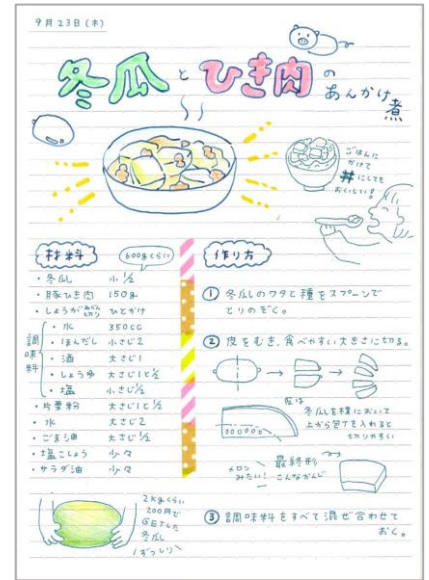 9月23日(木)
冬瓜とひき肉の
あんかけ煮
ごはんに
かけて
丼にしても
おいしい!
材料
600gくらい
・冬瓜 小1/2
・豚ひき肉 150g
・しょうが みじん切り ひとかけ
調味料
・水 350cc
・ほんだし 小さじ2
・酒 大さじ1
・しょうゆ 大さじ1と1/2
・塩 小さじ1/2
・片栗粉 大さじ1と1/2
・水 大さじ2
・ごま油 大さじ1/2
・塩こしょう 少々
・サラダ油 少々
2kgくらい
200円で
GETした
冬瓜
ずっしり
作り方
① 冬瓜のワタと種をスプーンで
とりのぞく。
② 皮をむき、食べやすい大きさに切る。
皮は
冬瓜を横において
上から包丁を入れると
切りやすい
メロン
みたい!
最終形
こんなかんじ
③ 調味料をすべて混ぜ合わせて
おく。